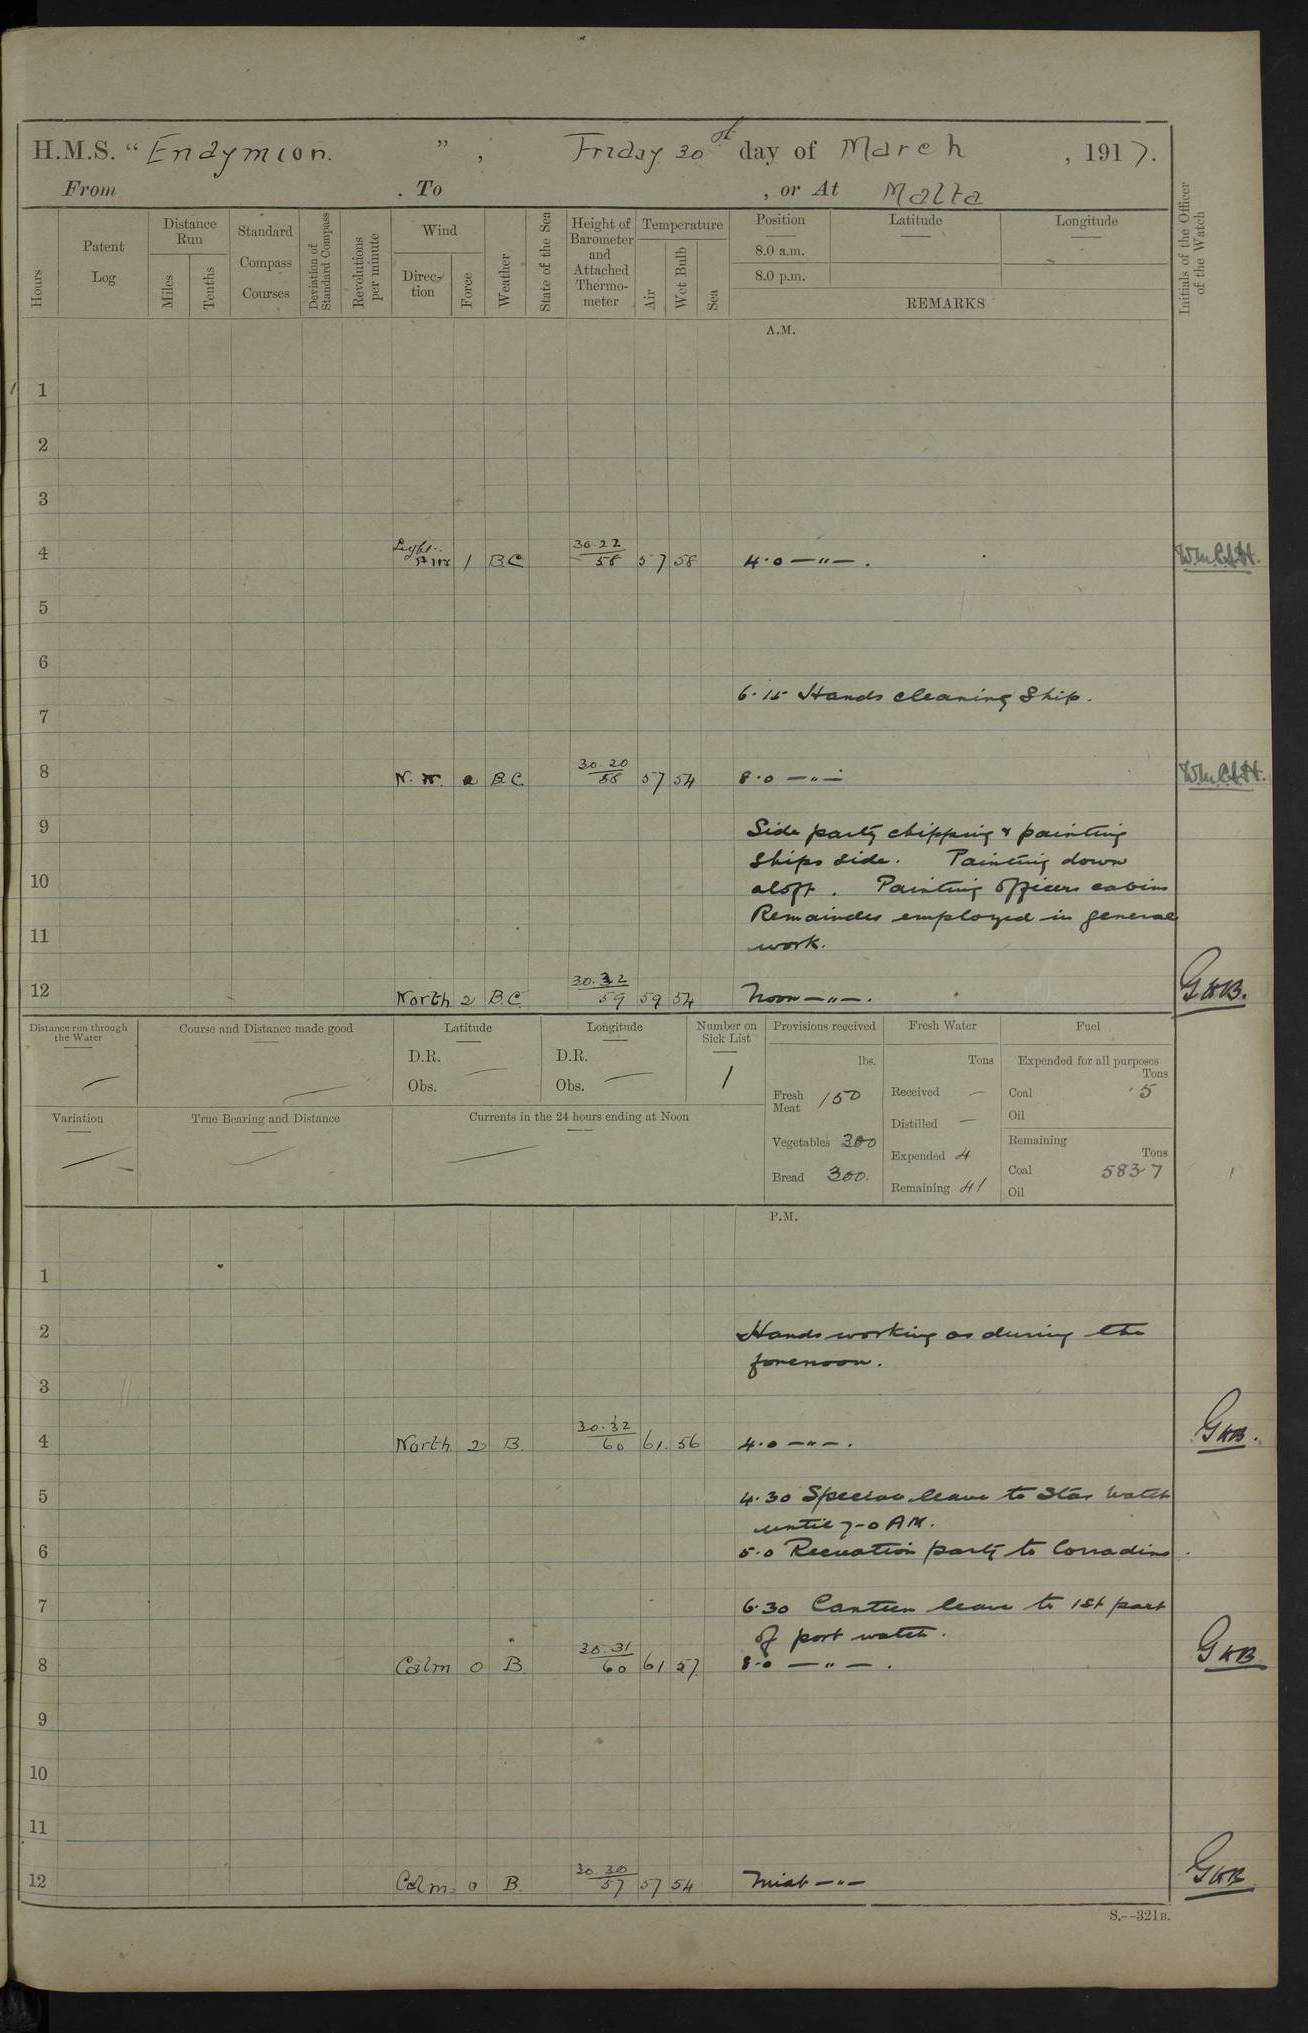 H.M.S. "Endymion.", Friday 30th day of March, 1917.
From . To , or At Malta
Hours
Patent Log
Distance Run
Miles
Tenths
Standard Compass Courses
Deviation of Standard Compass
Revolutions per minute
Wind
Direc-tion
Force
Weather
State of the Sea
Height of Barometer and Attached Thermo-meter
Temperature
Air
Wet Bulb
Sea
Position
8.0 a.m.
8.0 p.m.
Latitude
Longitude
REMARKS
Initials of the Officer of the Watch
A.M.
1
2
3
4 Light 1 BC 30.22 58 57 58 4.0 —"— .
5
6
6.15 Hands cleaning Ship.
7
8 BC 30.20 58 57 54 8.0 —"—
9 Side party chipping & painting
Ships side. Painting down
10 aloft. Painting officers cabins
Remainder employed in general
11 work.
12 North 2 BC 30.32 59 59 54 Noon —"— .
Distance run through the Water
Course and Distance made good
Latitude
D.R.
Obs.
Longitude
D.R.
Obs.
Number on Sick List
1
Provisions received
lbs.
Fresh Meat 150
Vegetables 300
Bread 300
Fresh Water
Tons
Received —
Distilled —
Expended 4
Remaining 41
Fuel
Expended for all purposes
Tons
Coal 5
Oil
Remaining
Tons
Coal 5837
Oil
Variation
True Bearing and Distance
Currents in the 24 hours ending at Noon
P.M.
1
2 Hands working as during the
forenoon.
3
4 North 2 B. 30.32 60 61 56 4.0 —"— .
5 4.30 Special leave to Star Watch
until 7-0 AM.
6 5.0 Recreation party to Corradino.
7 6.30 Canteen leave to 1st part
of port watch.
8 Calm 0 B. 30.31 60 61 57 8.0 —"— .
9
10
11
12 Calm 0 B 30.30 57 57 54 Midt —"—
S.--321B.